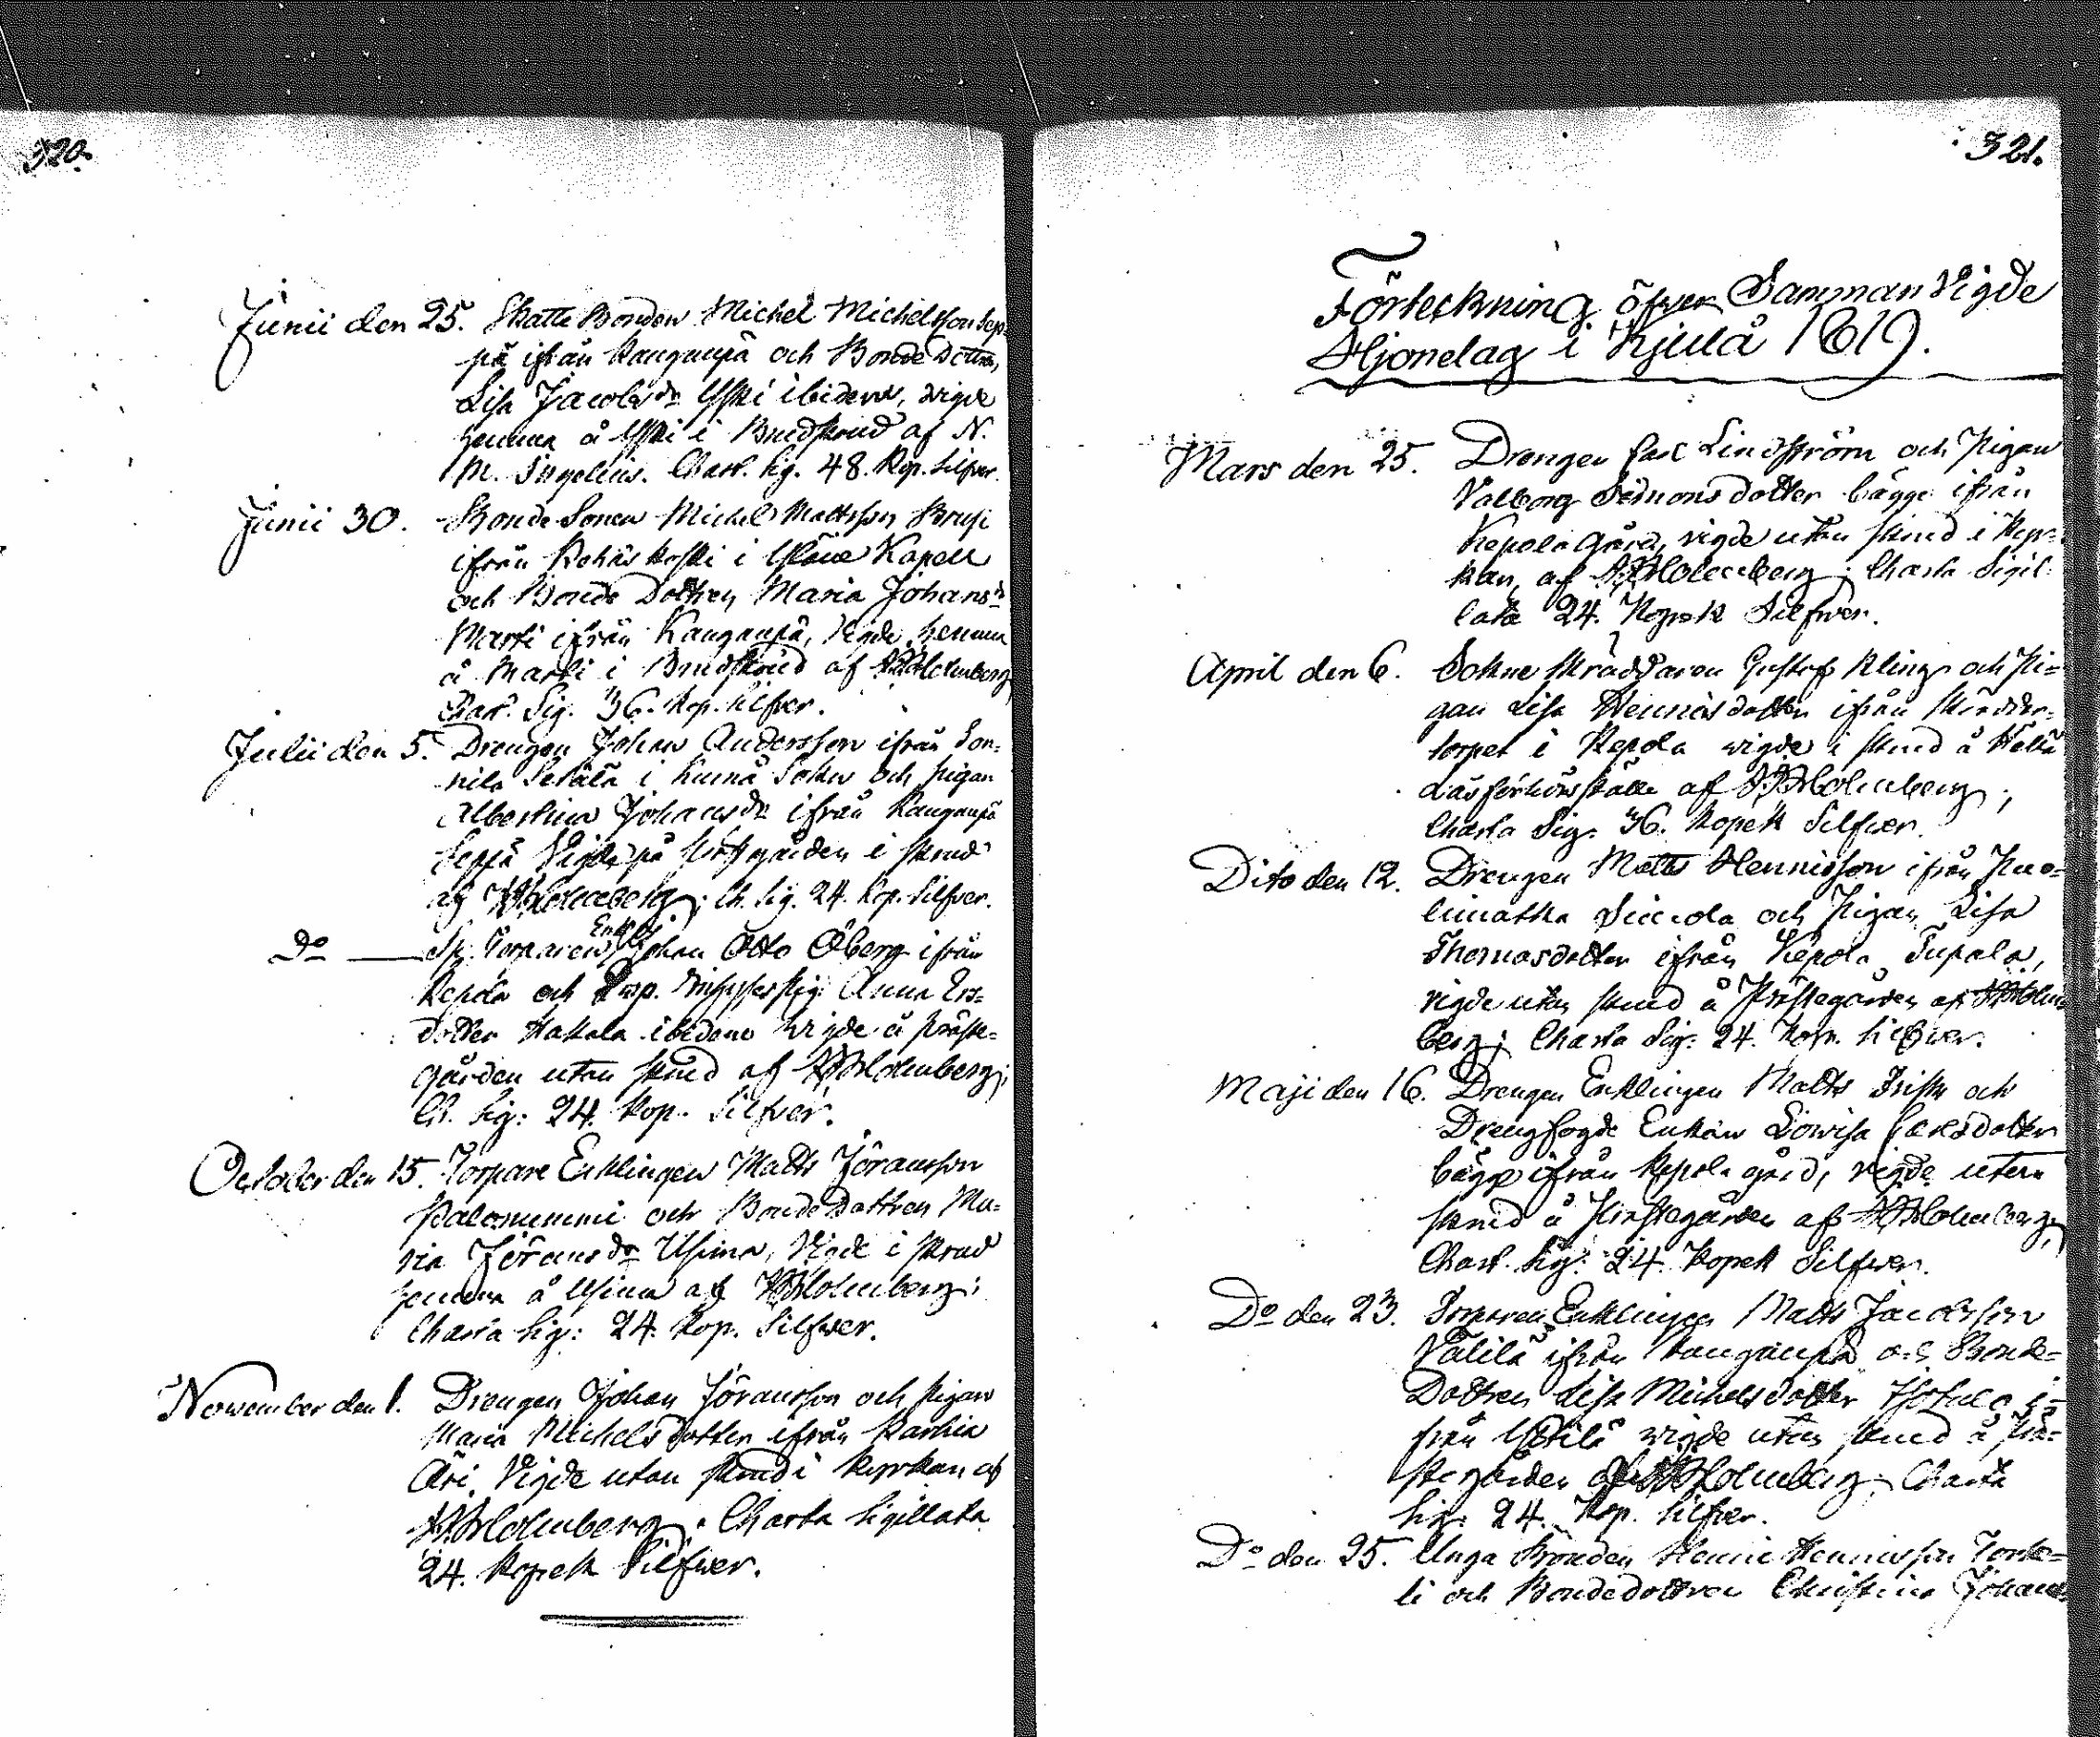 320.
Junii den 25. Skatte Bonden Michel Michelsson Sep-
pä ifrån Kauganpä och Bonde Dottren,
Lisa Jacobs dr Yski ibidem, vigde
hemma å Yski i Brudskrud af N.
M. Ingelius. Chart. Sig. 48. Kop. Silfver.
Junii 30. Bonde Sonen Michel Mattsson Brusi
ifrån i Kapell
och Bonde Dottren Maria Johans dr
Marti ifrån Kauganpä, vigde hemma
å Marti i Brudskrud af Holmberg
Chart. Sig. 36. Kop. Silfver.
Julii den 5. Drengen Johan Andersson ifrån Son-
nila Setälä i Kumå Sokn och Pigan
Albertina Johans dr ifrån Kauganpä
Seppä Vigde på Prestgården i Skrud
af Holmberg; Ch. Sig. 24. Kop. Silfver.
Do — Torparen Enkl. Johan Otto Öberg ifrån
Kepola och Anna Ers-
dotter Hakala ibidem vigde å Präste-
gården utan skrud af Holmberg;
Ch. Sig: 24. Kop. Silfver.
October den 15. Torpare Enklingen Matts Jöransson
Palomummi och Bonde Dottren Ma-
ria Jörans dr Uhima, Vigde i skrud
hemma å Uhima af Holmberg;
Charta Sig: 24. Kop. Silfwer.
November den 1. Drengen Johan Jöransson och Pigan
Maria Michels dotter ifrån Karhia
Äri, Vigde utan skrud i Kyrkan af
Holmberg. Charta Sigillata
24. Kopek Silfwer.
321.
Förteckning öfwer Sammanvigde
Hjonelag i Kjulå 1819.
Mars den 25. Drengen Carl Lindström och Pigan
Valborg Simons dotter bägge ifrån
Kepola Gård, vigde utan skrud i Kyr-
kan, af Holmberg; Charta Sigil-
lata 24. Kopek Silfwer.
April den 6. Sokne skräddaren Gustaf Kling och Pi-
gan Lisa Hennes dotter ifrån Skrädder-
torpet i Kepola vigde i skrud å
läsförhörsställe af Holmberg;
Charta Sig. 36. Kopek Silfwer.
Dito den 12. Drengen Matts Hennisson ifrån Puo-
limatka och Pigan Lisa
Thomasdotter ifrån Kepola Tupala,
vigde utan skrud å Prästegården af Holm-
berg; Charta Sig: 24. Kop. Silfwer.
Maji den 16. Drengen Enklingen Matts Frisk och
Drengfogde Enkan Lovisa Carlsdotter
bägge ifrån Kepola gård, vigde utan
skrud å Prästegården af Holmberg;
Chart. Sig: 24. Kopek Silfwer.
Do den 23. Torparen Enklingen Matts Jacobsson
Välilä ifrån Kauganpä och Bonde-
Dottren Lisa Michelsdotter i-
från vigde utan skrud å Prä-
stegården af Holmberg; Charta
Sig. 24. Kop. Silfver.
Do den 25. Unga Bonden Henric Hennisson Torke-
li och Bondedottren Christina Johans